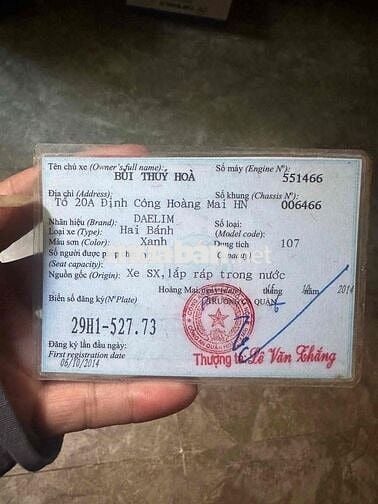 Tên chủ xe (Owner's full name): Số máy (Engine Nº):
BÙI THUÝ HOÀ 551466
Địa chỉ (Address): Số khung (Chassis Nº):
Tổ 20A Định Công Hoàng Mai HN 006466
Nhãn hiệu (Brand): DAELIM Số loại:
Loại xe (Type): Hai Bánh (Model code):
Màu sơn (Color): Xanh Dung tích 107
Số người được (Capacity)
(Seat capacity)
Nguồn gốc (Origin): Xe SX, lắp ráp trong nước
Hoàng Mai, ngày (date) tháng năm 2014
Biển số đăng ký (Nº Plate) TRƯỞNG CA QUẬN
29H1-527.73
Đăng ký lần đầu ngày:
First registration date
06/10/2014
Thượng tá Lê Văn Thắng